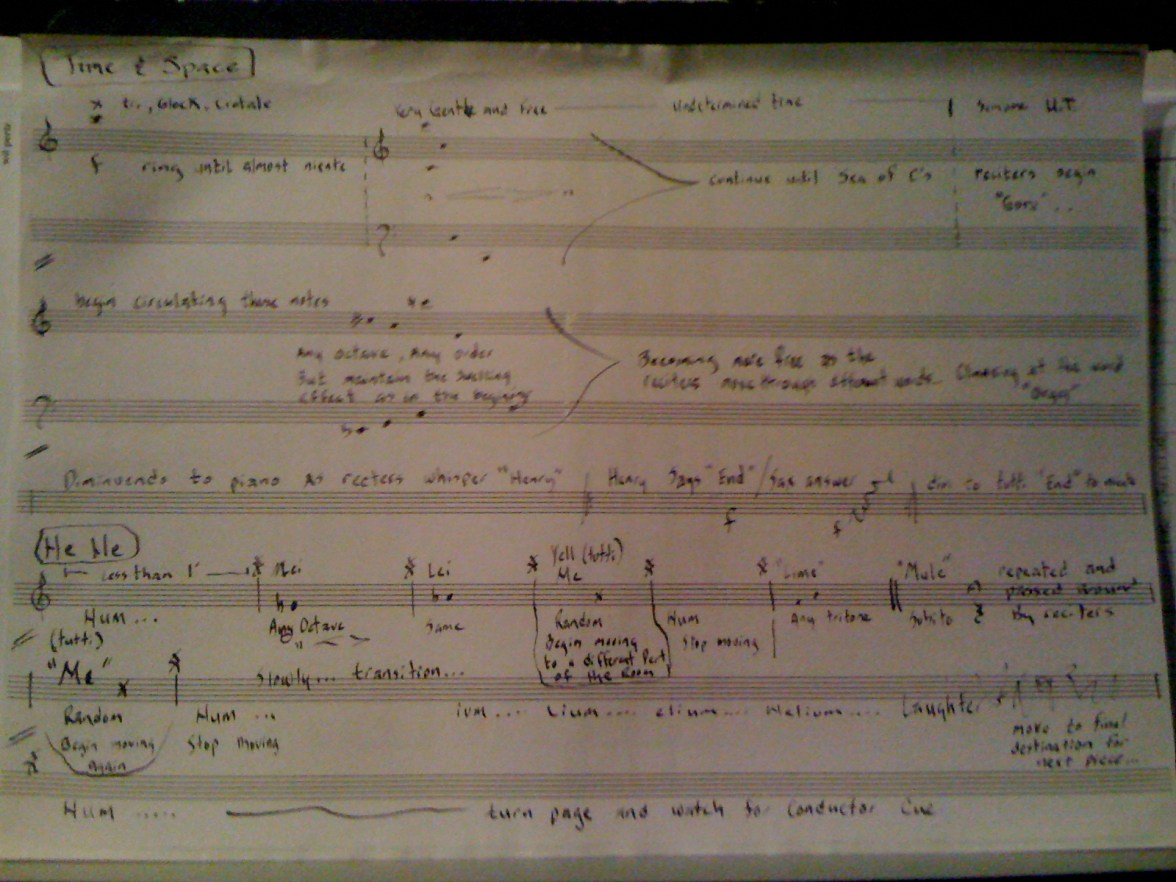 Time & Space
Glock, Crotale
Very Gentle and Free
undetermined time
f ring until almost niente
continue until Sea of C's
reciters begin
begin circulating these notes
Any octave, Any order
But maintain the swelling
effect as in the begining
Becoming more free as the
reciters move through different words...
at the word
Diminuendo to piano as reciters whisper "Henry"
Henry Says "End" / Sax answer
dim to tutti "End" to
f
f
He He
Less than 1'
Lei
Yell (tutti)
Me
"Lime"
"Mule"
repeated and
passed around
By reciters
Hum...
(tutti)
Any Octave
Same
Random
Begin moving
to a different Part
of the Room
Hum
Stop moving
Any tritone
Subito
"Me"
Slowly... transition...
Random
Hum ...
ium.... Lium.... elium.... Helium....
Laughter
Begin moving
Again
Stop moving
move to final
destination for
next piece...
Hum .....
turn page and watch for Conductor Cue